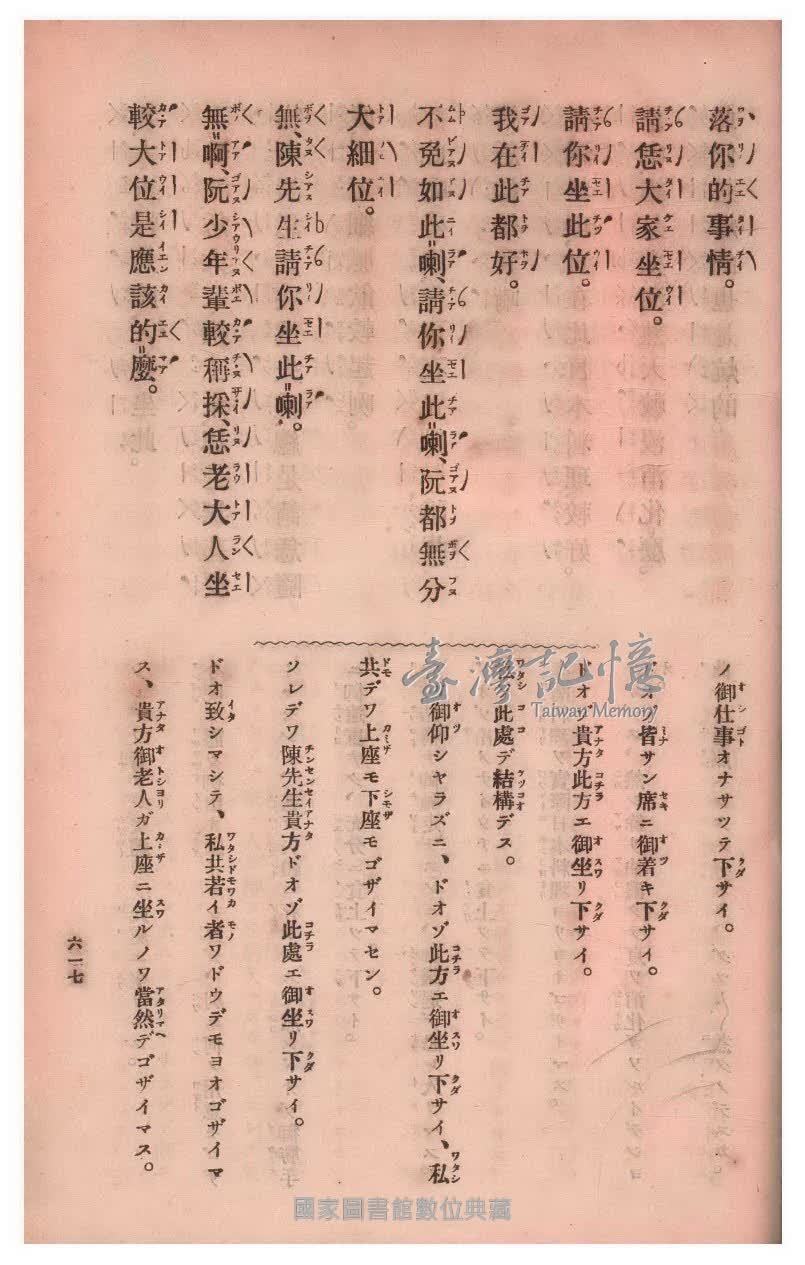 落你的事情。
請恁大家坐位。
請你坐此位。
我在此都好。
不免如此喇、請你坐此喇、阮都無分
大細位。
無、陳先生請你坐此喇。
無啊、阮少年輩較稱採、恁老大人坐
較大位是應該的麼。
ノ御仕事オナサツテ下サイ。
皆サン席ニ御着キ下サイ。
ドオゾ貴方此方エ御坐リ下サイ。
此處デ結構デス。
御仰シヤラズニ、ドオゾ此方エ御坐リ下サイ、私
共デワ上座モ下座モゴザイマセン。
ソレデワ陳先生貴方ドオゾ此處エ御坐リ下サイ。
ドオ致シマシテ、私共若イ者ワドウデモヨオゴザイマ
ス、貴方御老人ガ上座ニ坐ルノワ當然デゴザイマス。
六一七
臺灣記憶
Taiwan Memory
國家圖書館數位典藏